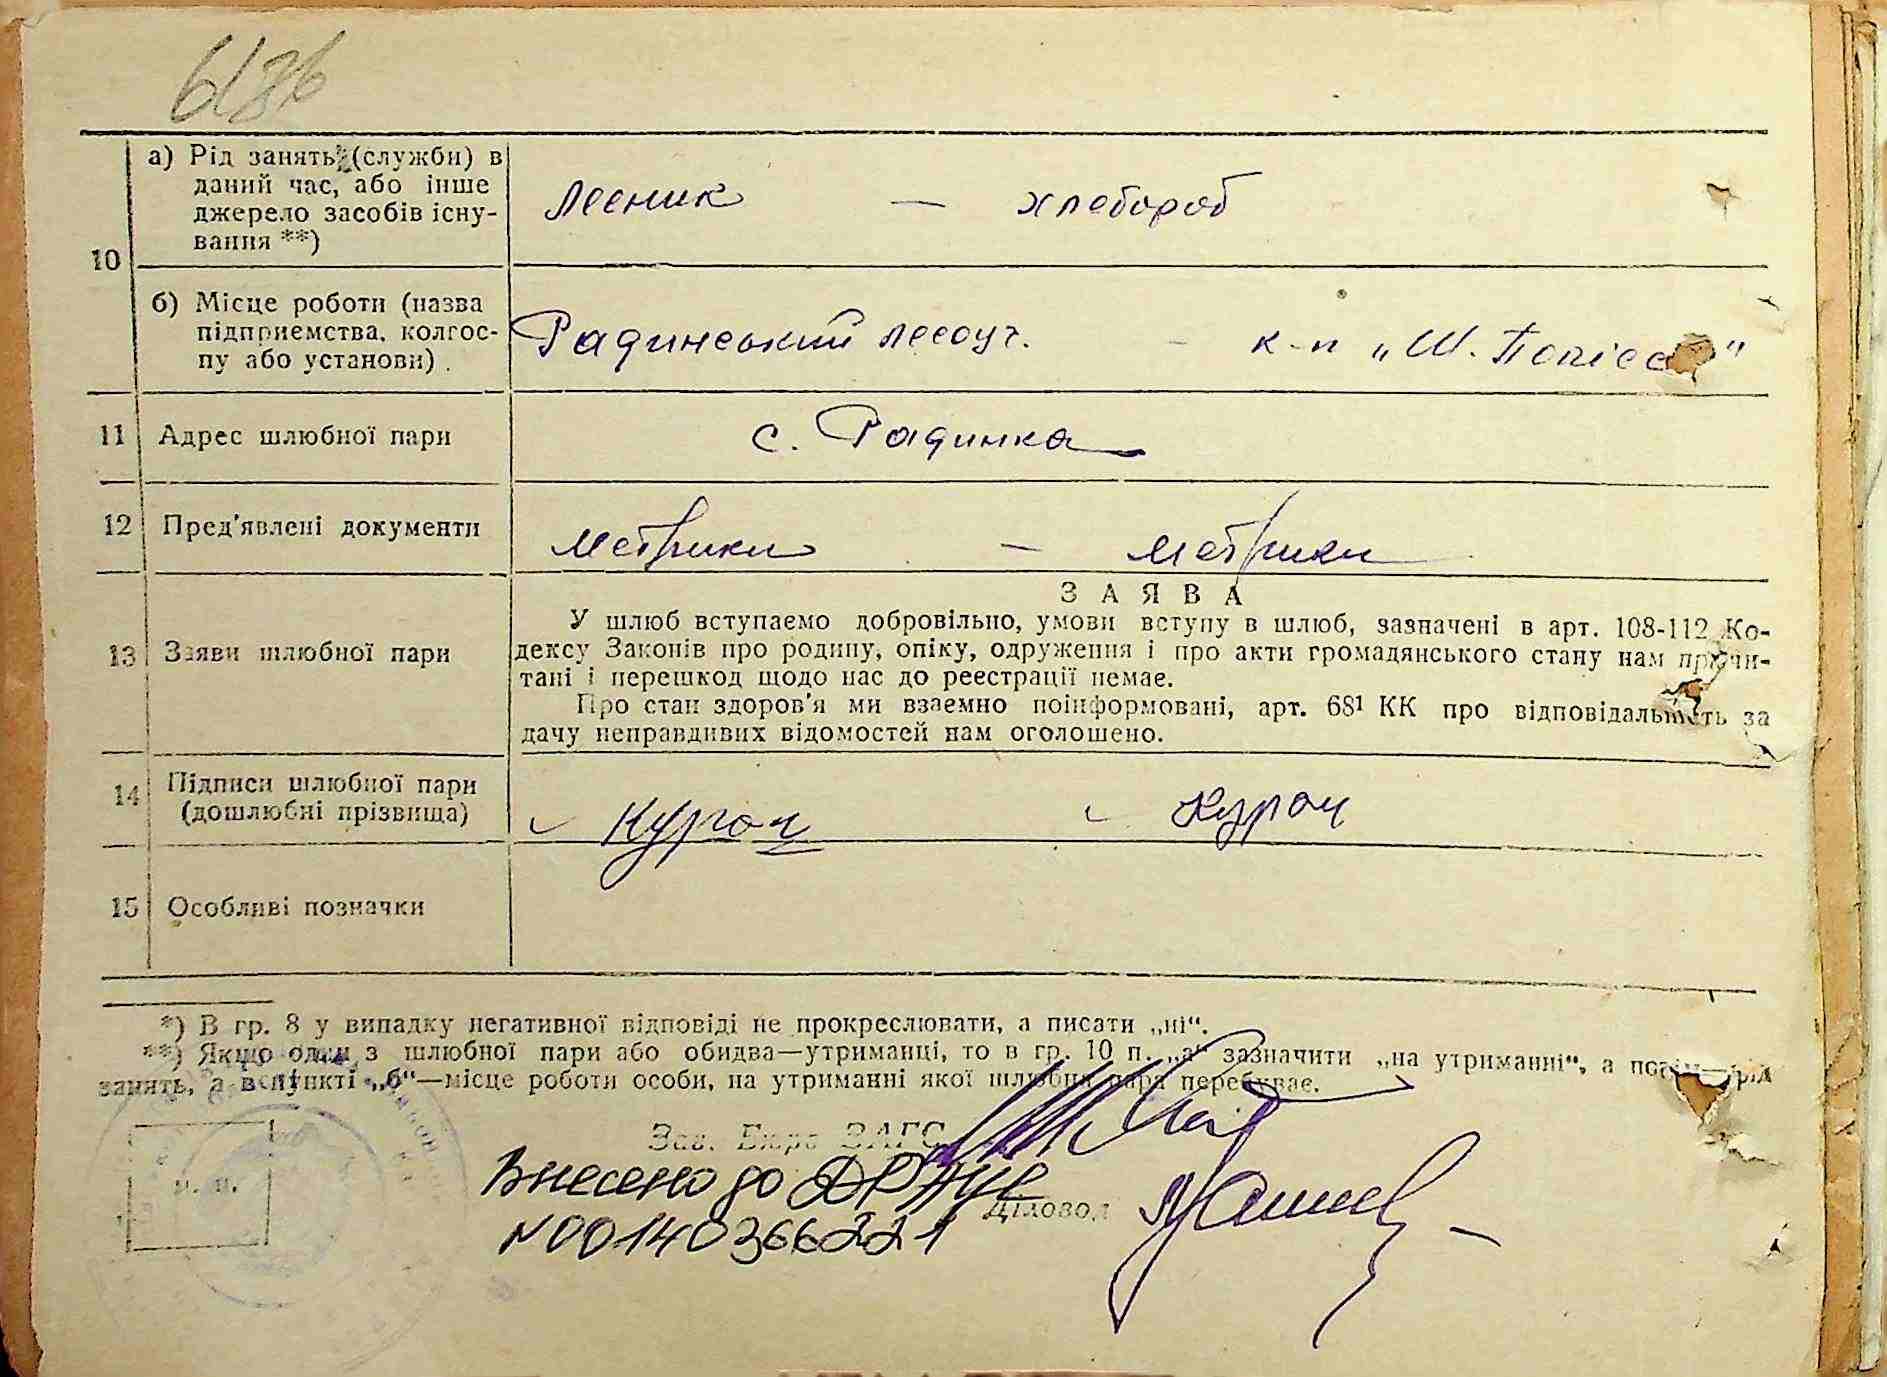 а) Рід занять (служби) в
даний час, або інше
джерело засобів існу-
вання **)
лесник — хлебороб
10
б) Місце роботи (назва
підприємства, колгос-
пу або установи).
Радинський лесоуч. - к-п „Ш. Поліссо"
11 Адрес шлюбної пари с. Радинка
12 Пред'явлені документи метрики — метрики
ЗАЯВА
13 Заяви шлюбної пари
У шлюб вступаємо добровільно, умови вступу в шлюб, зазначені в арт. 108-112 Ко-
дексу Законів про родину, опіку, одруження і про акти громадянського стану нам прочи-
тані і перешкод щодо нас до реєстрації немає.
Про стан здоров'я ми взаємно поінформовані, арт. 68¹ КК про відповідальність за
дачу неправдивих відомостей нам оголошено.
14 Підписи шлюбної пари
(дошлюбні прізвища)
Курач Курач
15 Особливі позначки
*) В гр. 8 у випадку негативної відповіді не прокреслювати, а писати „ні“.
**) Якщо один з шлюбної пари або обидва—утриманці, то в гр. 10 п. „а“ зазначити „на утриманні“, а потім—рід
занять, а в пункті „б“—місце роботи особи, на утриманні якої шлюбна пара перебуває.
Зав. Бюро ЗАГС
м. п.
Внесено до ДРАЦС
Діловод
N00140366221